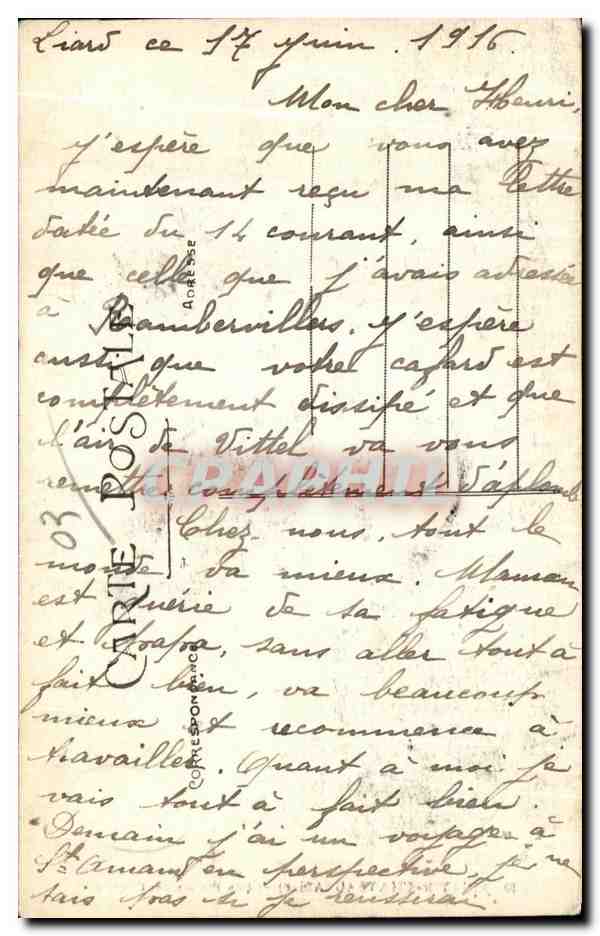 Liard ce 17 Juin. 1916.
Mon cher Henri,
J'espère que vous avez
maintenant reçu ma lettre
datée du 14 courant, ainsi
que celle que j'avais adressée
à Rambervillers. J'espère
aussi que votre cafard est
complètement dissipé et que
l'air de Vittel va vous
remettre complètement d'aplomb
Chez nous, tout le
monde va mieux. Maman
est guérie de sa fatigue
et Papa, sans aller tout à
fait bien, va beaucoup
mieux et recommence à
travailler. Quant à moi je
vais tout à fait bien.
Demain j'ai un voyage à
St Amand en perspective, je ne
sais pas si je réussirai.
CARTE POSTALE
CORRESPONDANCE
ADRESSE
03
CPAPHIL